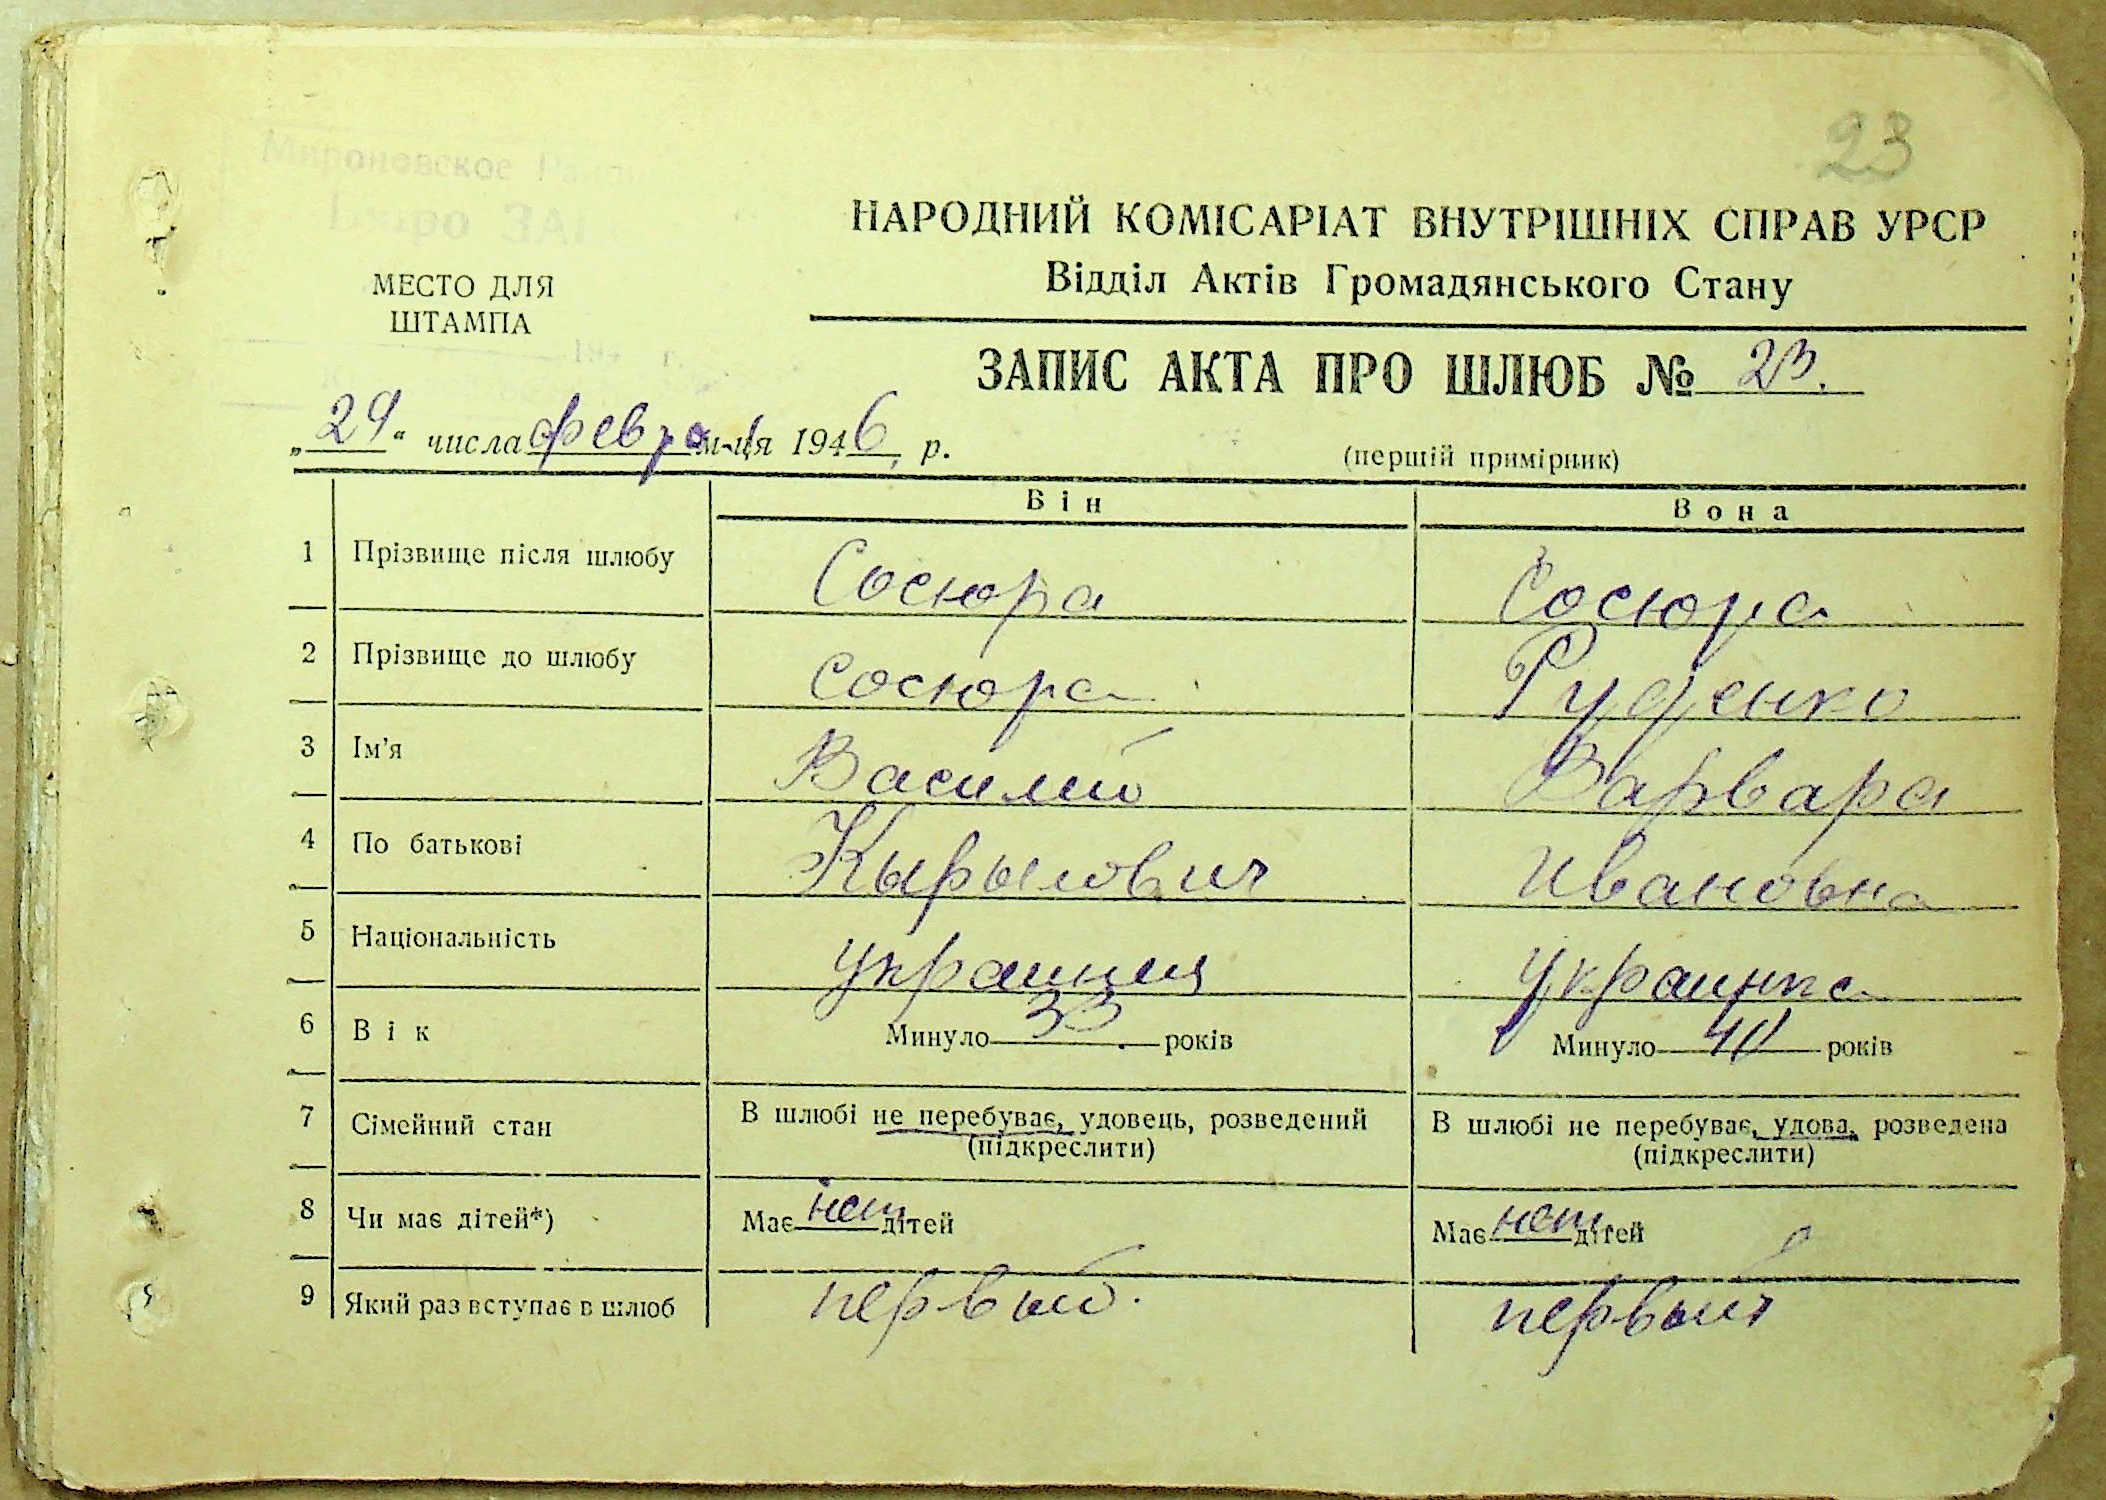 23
Мироновское
Бюро ЗАГ
НАРОДНИЙ КОМІСАРІАТ ВНУТРІШНІХ СПРАВ УРСР
Відділ Актів Громадянського Стану
МЕСТО ДЛЯ
ШТАМПА
194 г.
ЗАПИС АКТА ПРО ШЛЮБ № 23.
„29“ числа февра м-ця 1946 р.
(першій примірник)
Він Вона
1 Прізвище після шлюбу Сосюра Сосюра
2 Прізвище до шлюбу Сосюра Руденко
3 Ім'я Василий Варвара
4 По батькові Кырылович Ивановна
5 Національність украинця Украинка
6 Вік Минуло 33 років Минуло 40 років
7 Сімейний стан В шлюбі не перебуває, удовець, розведений В шлюбі не перебуває, удова, розведена
(підкреслити) (підкреслити)
8 Чи має дітей*) Має нет дітей Має нет дітей
9 Який раз вступає в шлюб первый. первый